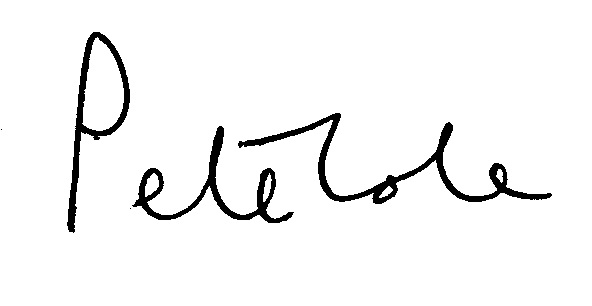 Pete Cole